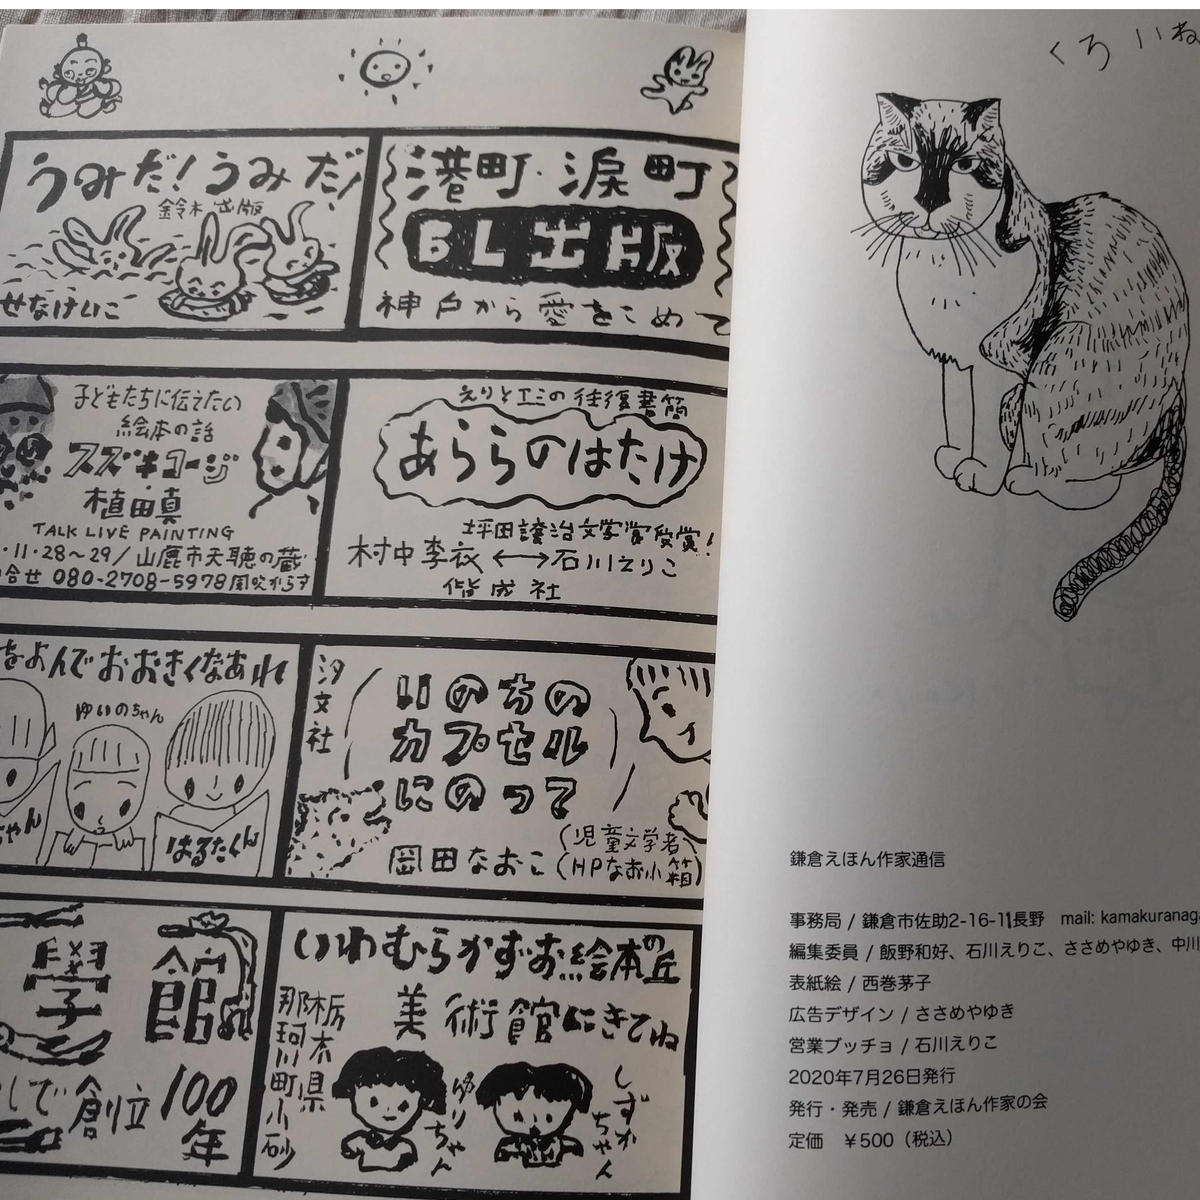 うみだ!うみだ!
鈴木出版
せなけいこ
港町・涙町
BL出版
神戸から愛をこめて
子どもたちに伝えたい
絵本の話
スズキコージ
植田真
TALK LIVE PAINTING
・11・28〜29/山鹿市天聴の蔵
合せ 080-2708-5978
えりとエミの往復書簡
あららのはたけ
坪田譲治文学賞受賞!
村中李衣⟷石川えりこ
偕成社
をよんでおおきくなあれ
ゆいのちゃん
ちゃん
はるたくん
汐文社
いのちの
カプセル
にのって
岡田なおこ
(児童文学者)
(HPなお小箱)
學館
子
して創立100年
いわむらかずお絵本の丘
美術館にきてね
栃木県
那珂川町小砂
ゆりちゃん
しずかちゃん
くろいね
鎌倉えほん作家通信
事務局 / 鎌倉市佐助2-16-11長野 mail: kamakuranaga
編集委員 / 飯野和好、石川えりこ、ささめやゆき、中川
表紙絵 / 西巻茅子
広告デザイン / ささめやゆき
営業ブッチョ / 石川えりこ
2020年7月26日発行
発行・発売 / 鎌倉えほん作家の会
定価 ¥500(税込)